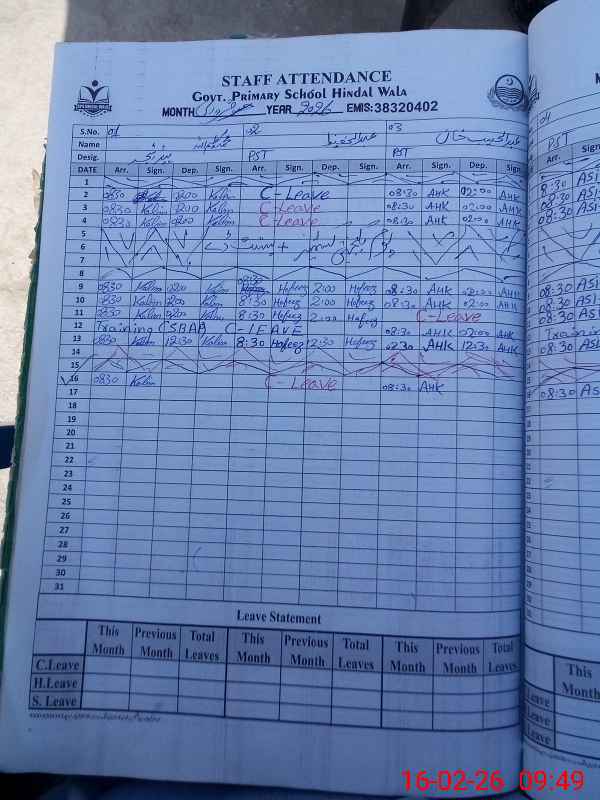 STAFF ATTENDANCE
GOVT. PRIMARY SCHOOL HINDAL WALA
MONTH فروری YEAR 2026 EMIS:38320402
S.No. 01 02 03
Name عبدالحفیظ عبدالحبیب خان
Desig. PST PST
DATE Arr. Sign. Dep. Sign. Arr. Sign. Dep. Sign. Arr. Sign. Dep. Sign.
1
2 0830 1200 Kalim C-Leave 08:30 AHK 02:00 AHK
3 0830 Kalim 0200 Kalim C-Leave 08:30 AHK 02:00 AHK
4 0830 Kalim 0200 Kalim C-Leave 08:30 AHK 02:00 AHK
5
6
7
8
9 0830 Kalim 0200 Kalim Hafeez 2:00 Hafeez 08:30 AHK 02:00 AHK
10 0830 Kalim 0200 Kalim 8:30 Hafeez 2:00 Hafeez 08:30 AHK 02:00 AHK
11 0830 Kalim 0200 Kalim 8:30 Hafeez 2:00 Hafeez C-Leave
12 Training C-LEAVE 08:30 AHK 02:00 AHK
13 0830 Kalim 12:30 Kalim 8:30 Hafeez 12:30 Hafeez AHK 12:30 AHK
14
15
16 0830 Kalim C-Leave 08:30 AHK
17
18
19
20
21
22
23
24
25
26
27
28
29
30
31
Leave Statement
This Month Previous Month Total Leaves This Month Previous Month Total Leaves This Month Previous Month Total Leaves
C.Leave
H.Leave
S. Leave
04
PST
Arr. Sign
8:30 ASI
08:30 ASI
08:30 ASI
08:30 ASI
08:30 ASI
08:30 ASI
Training
08:30 ASI
08:30 ASI
This Month
16-02-26 09:49